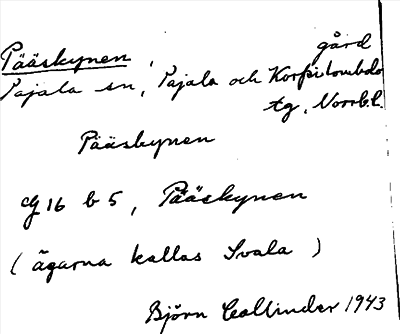 Pääskynen, gård
Pajala sn, Pajala och Korpilombolo
tg, Norrb.l.
Pääskynen
cg 16 b 5, Pääskynen
(ägarna kallas Svala)
Björn Collinder 1943